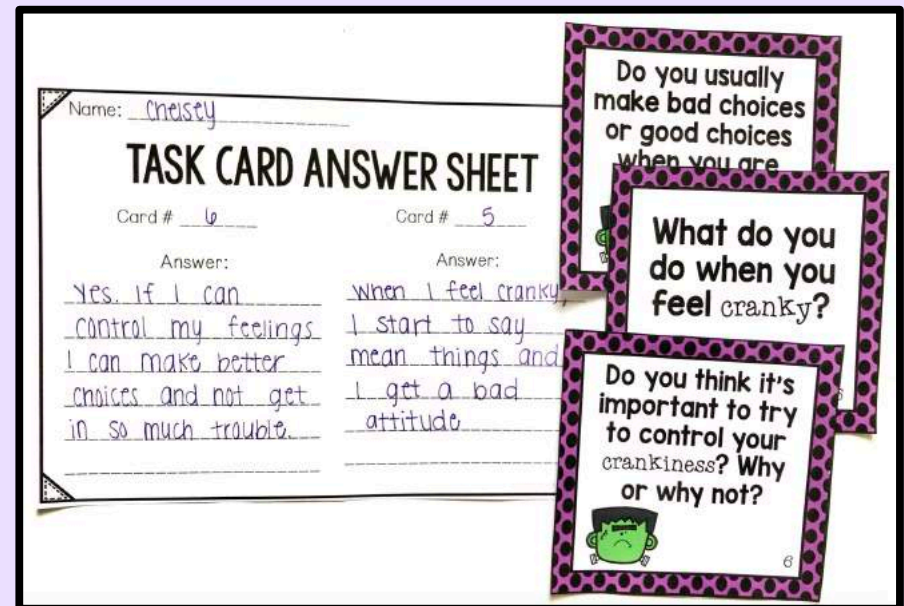 Name: Chelsey
TASK CARD ANSWER SHEET
Card # 6
Answer:
Yes. If I can
control my feelings
I can make better
choices and not get
in so much trouble.
Card # 5
Answer:
When I feel cranky,
I start to say
mean things and
I get a bad
attitude
Do you usually
make bad choices
or good choices
when you are
What do you
do when you
feel cranky?
Do you think it's
important to try
to control your
crankiness? Why
or why not?
6